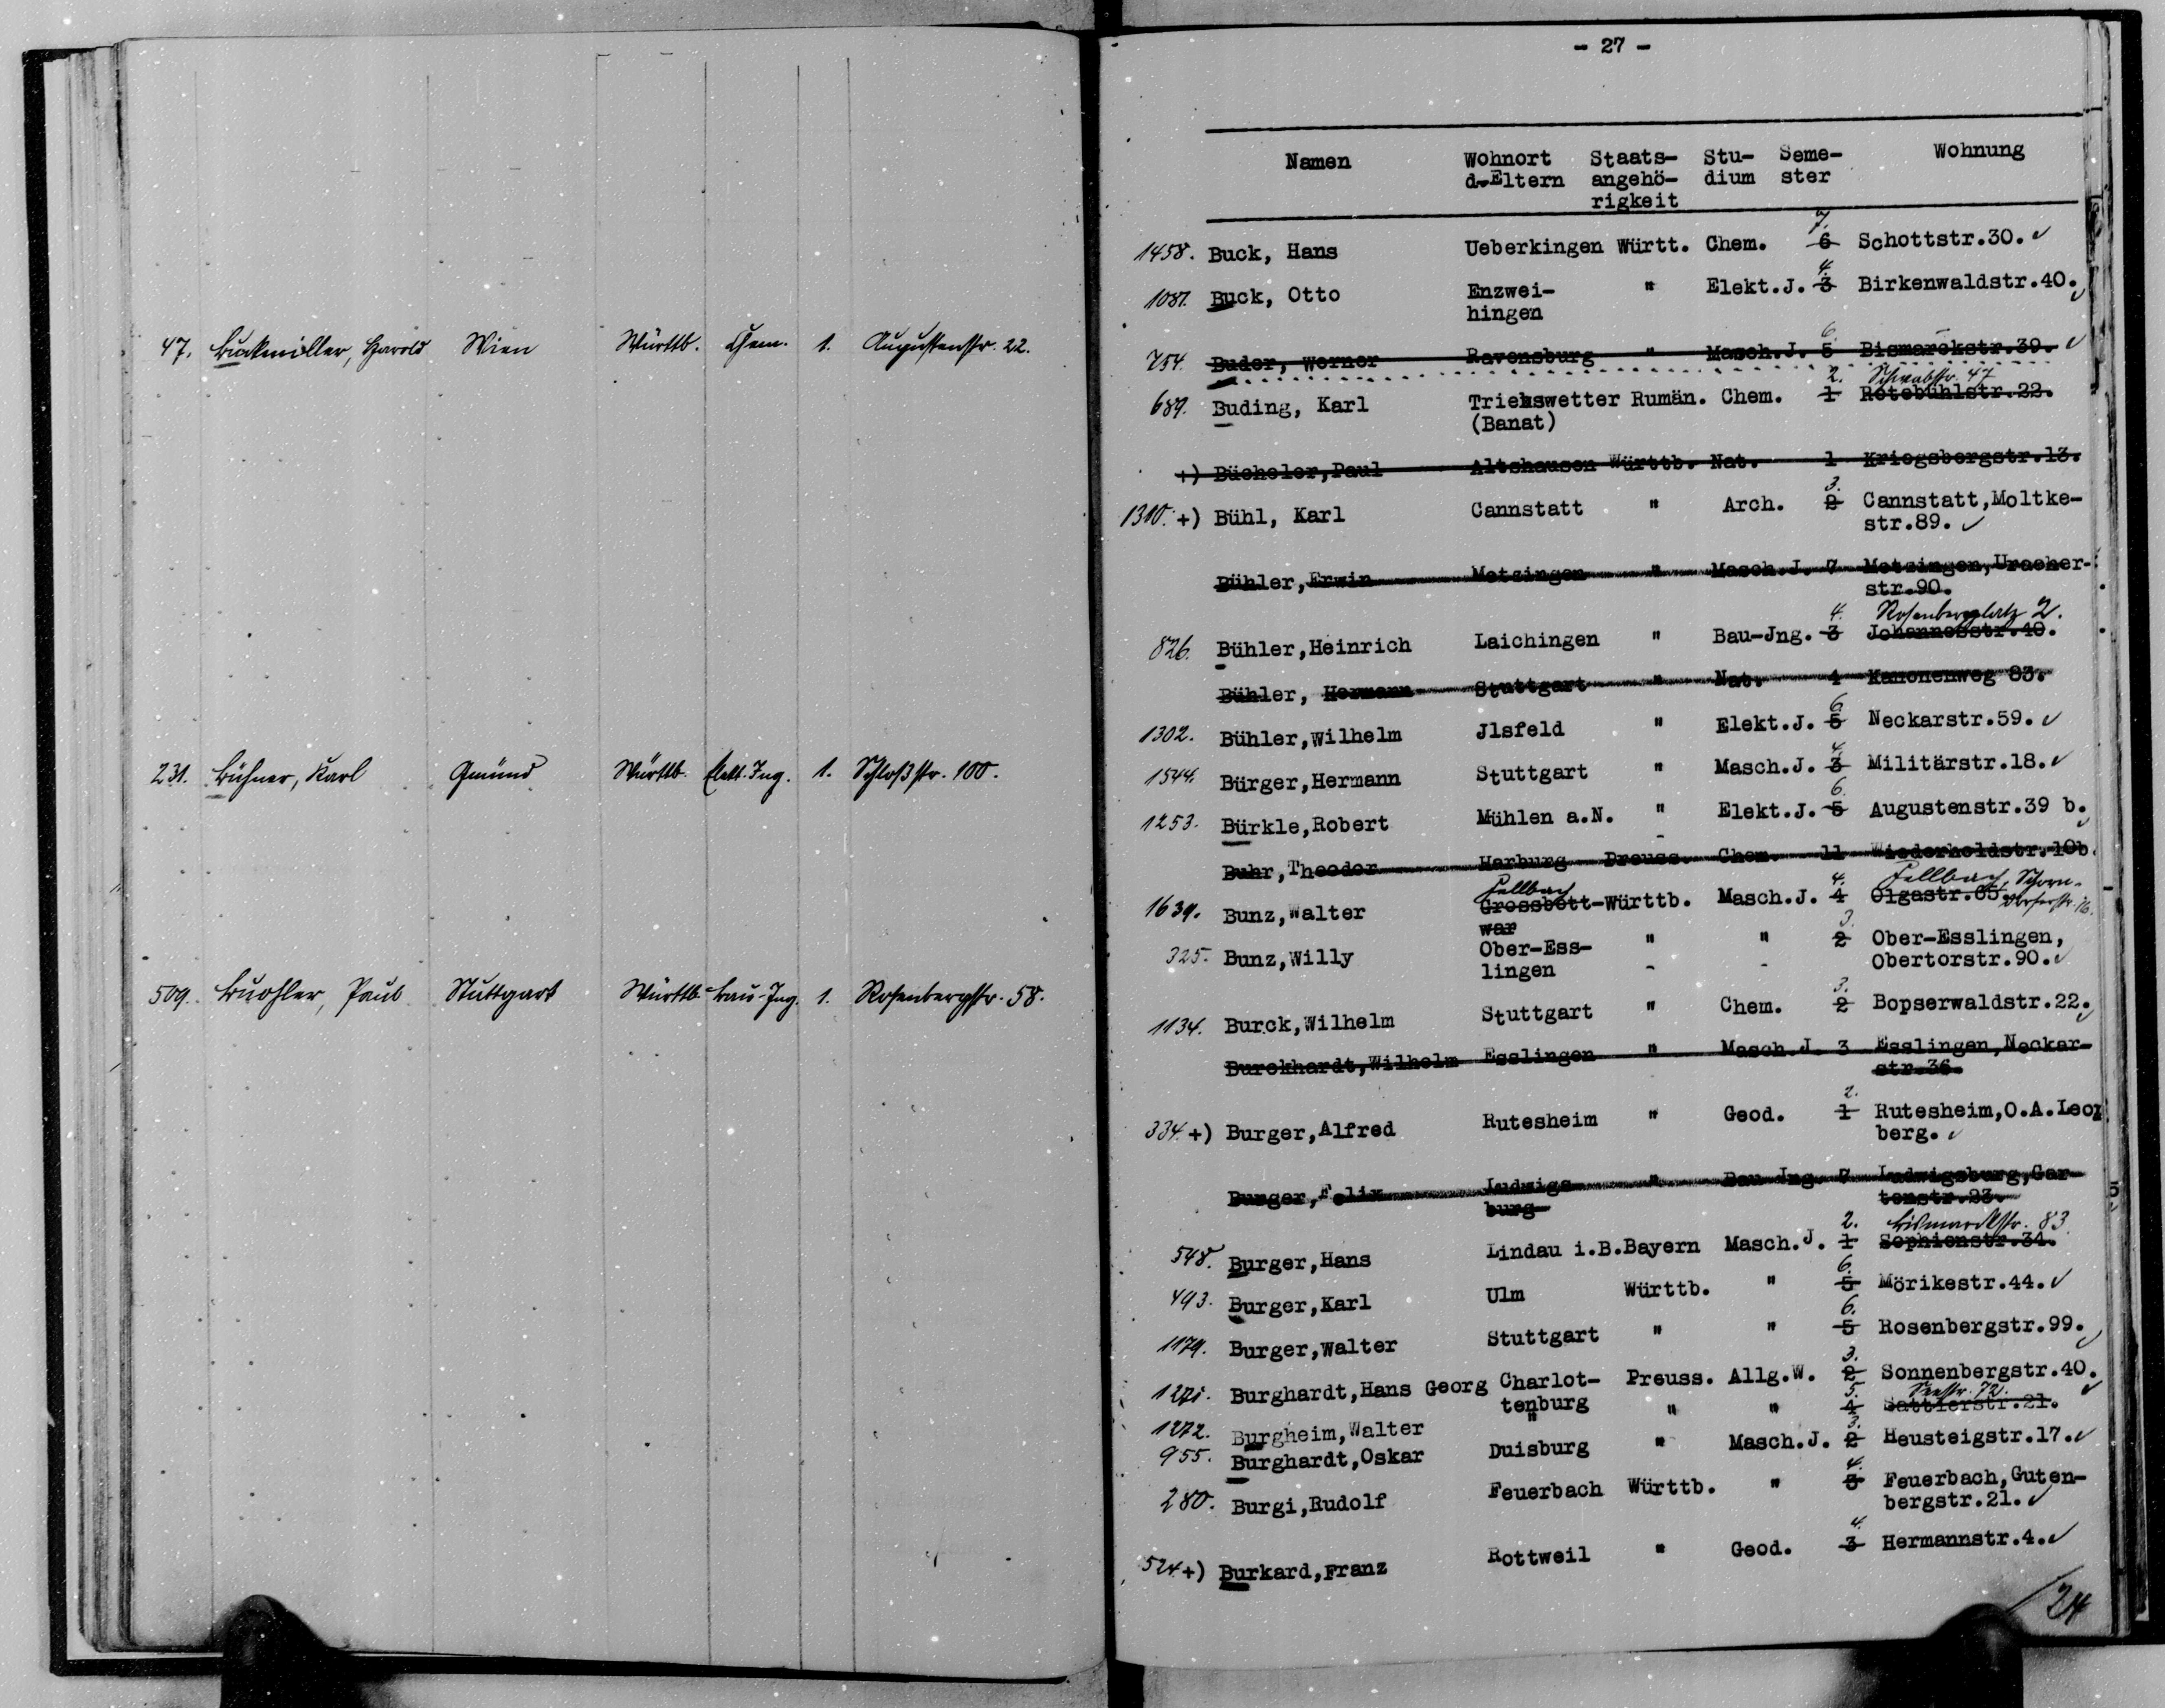 47. Buckmiller, Harold Wien Württb. Chem. 1. Augustenstr. 22.
231. Bühner, Karl Gmünd Württb. Elekt. Ing. 1. Schloßstr. 100.
509. Buohler, Paul Stuttgart Württb. Bau-Ing. 1. Rosenbergstr. 58.
- 27 -
Namen Wohnort Staats- Stu- Seme- Wohnung
d.Eltern angehö- dium ster
rigkeit
7.
1458. Buck, Hans Ueberkingen Württ. Chem. 6 Schottstr.30. ✓
4.
1087. Buck, Otto Enzwei- " Elekt.J. 3 Birkenwaldstr.40. ✓
hingen
6.
754. Buder, Werner Ravensburg " Masch.J. 5 Bismarckstr.39. ✓
2. Schwabstr. 47
689. Buding, Karl Triebswetter Rumän. Chem. 1 Rotebühlstr.22.
(Banat)
+) Bücheler,Paul Altshausen Württb. Nat. 1 Kriegsbergstr.13.
3.
1310. +) Bühl, Karl Cannstatt " Arch. 2 Cannstatt,Moltke-
str.89. ✓
Bühler,Erwin Metzingen " Masch.J. 7 Metzingen,Uracher-
str.90.
4. Rosenbergplatz 2.
826. Bühler,Heinrich Laichingen " Bau-Jng. 3 Johannesstr.40.
Bühler, Hermann Stuttgart " Nat. 4 Kanonenweg 83.
6.
1302. Bühler,Wilhelm Jlsfeld " Elekt.J. 5 Neckarstr.59. ✓
4.
1544. Bürger,Hermann Stuttgart " Masch.J. 3 Militärstr.18. ✓
6.
1253. Bürkle,Robert Mühlen a.N. " Elekt.J. 5 Augustenstr.39 b. ✓
Buhr,Theodor Harburg Preuss. Chem. 11 Wiederholdstr.10b.
Fellbach 4. Fellbach, Schorn-
1639. Bunz,Walter Grossbott-Württb. Masch.J. 4 Olgastr.65 dorferstr. 16.
war
3.
325. Bunz,Willy Ober-Ess- " " 2 Ober-Esslingen,
lingen Obertorstr.90. ✓
3.
1134. Burck,Wilhelm Stuttgart " Chem. 2 Bopserwaldstr.22. ✓
Burckhardt,Wilhelm Esslingen " Masch.J. 3 Esslingen,Neckar-
str.36.
2.
334. +) Burger,Alfred Rutesheim " Geod. 1 Rutesheim,O.A.Leon
berg. ✓
Burger,Felix Ludwigs- " Bau-Jng. 7 Ludwigsburg,Gar-
burg tenstr.23.
2. Bismarckstr. 83
548. Burger,Hans Lindau i.B.Bayern Masch.J. 1 Sophienstr.34.
6.
493. Burger,Karl Ulm Württb. " 5 Mörikestr.44. ✓
6.
1179. Burger,Walter Stuttgart " " 5 Rosenbergstr.99. ✓
3.
1271. Burghardt,Hans Georg Charlot- Preuss. Allg.W. 2 Sonnenbergstr.40. ✓
tenburg
5. Seestr. 72.
1272. Burgheim,Walter " " " 4 Sattlerstr.21.
3.
955. Burghardt,Oskar Duisburg " Masch.J. 2 Heusteigstr.17. ✓
4.
280. Burgi,Rudolf Feuerbach Württb. " 3 Feuerbach,Guten-
bergstr.21. ✓
4.
524 +) Burkard,Franz Rottweil " Geod. 3 Hermannstr.4. ✓
24